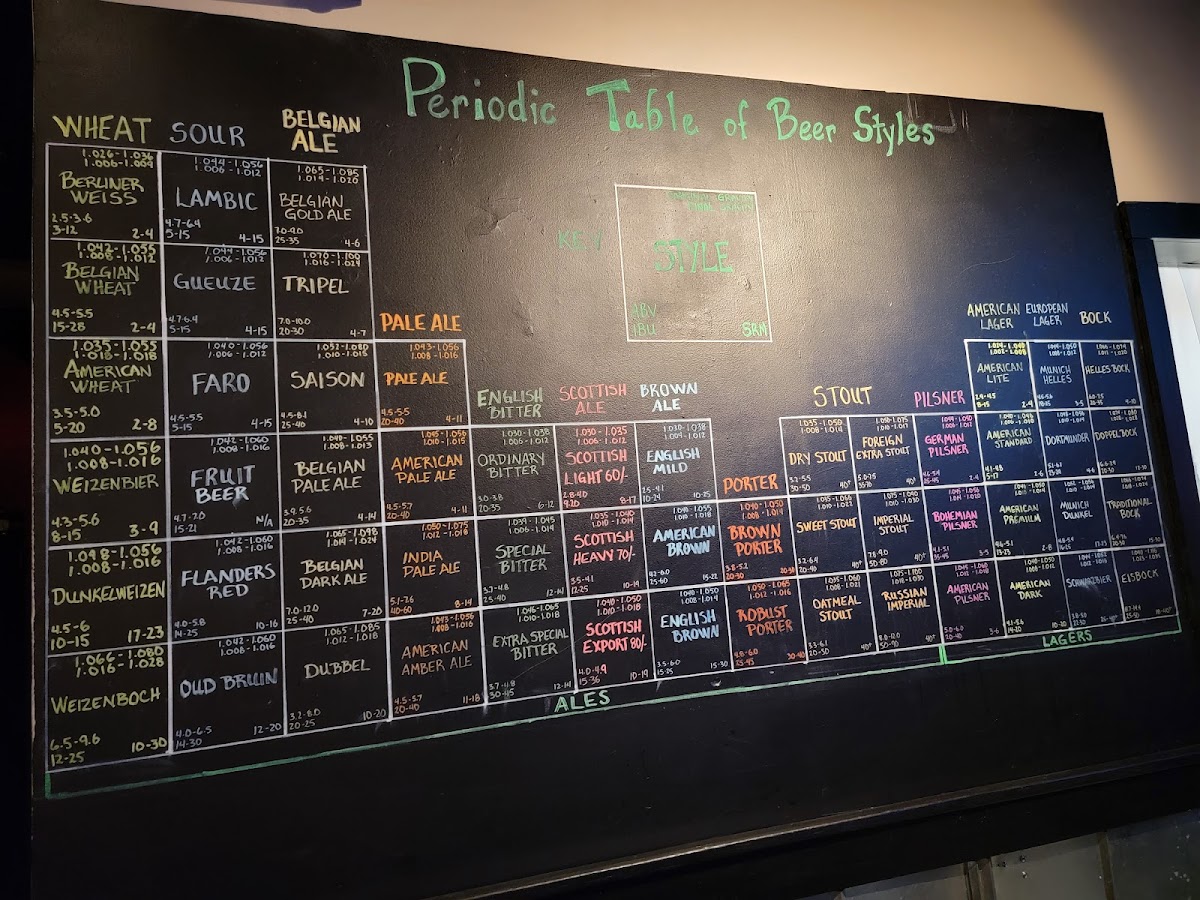 Periodic Table of Beer Styles
KEY
STYLE
ABV
IBU
SRM
WHEAT
1.026-1.036
1.006-1.009
BERLINER
WEISS
2.5-3.6
3-12
2-4
1.042-1.055
1.008-1.012
BELGIAN
WHEAT
4.5-5.5
15-28
2-4
1.035-1.055
1.018-1.018
AMERICAN
WHEAT
3.5-5.0
5-20
2-8
1.040-1.056
1.008-1.016
WEIZENBIER
4.3-5.6
8-15
3-9
1.048-1.056
1.008-1.016
DUNKELWEIZEN
4.5-6
10-15
17-23
1.066-1.080
1.016-1.028
WEIZENBOCH
6.5-9.6
12-25
10-30
SOUR
1.044-1.056
1.006-1.012
LAMBIC
4.7-6.4
5-15
4-15
1.044-1.056
1.006-1.012
GUEUZE
4.7-6.4
5-15
4-15
1.040-1.056
1.006-1.012
FARO
4.5-5.5
5-15
4-15
1.042-1.060
1.008-1.016
FRUIT
BEER
4.7-7.0
15-21
N/A
1.042-1.060
1.008-1.016
FLANDERS
RED
4.0-5.8
14-25
10-16
1.042-1.060
1.008-1.016
OUD BRUIN
4.0-6.5
14-30
12-20
BELGIAN
ALE
1.065-1.085
1.014-1.020
BELGIAN
GOLD ALE
7.0-9.0
25-35
4-6
1.070-1.100
1.016-1.024
TRIPEL
7.0-10.0
20-30
4-7
1.052-1.080
1.010-1.015
SAISON
4.5-8.1
25-40
4-10
1.040-1.055
1.008-1.013
BELGIAN
PALE ALE
3.9-5.6
20-35
4-14
1.065-1.098
1.014-1.024
BELGIAN
DARK ALE
7.0-12.0
25-40
7-20
1.065-1.085
1.012-1.018
DUBBEL
3.2-8.0
20-25
10-20
PALE ALE
1.043-1.056
1.008-1.016
PALE ALE
4.5-5.5
20-40
4-11
1.045-1.056
1.010-1.015
AMERICAN
PALE ALE
4.5-5.7
20-40
4-11
1.050-1.075
1.012-1.018
INDIA
PALE ALE
5.1-7.6
40-60
8-14
1.043-1.056
1.008-1.016
AMERICAN
AMBER ALE
4.5-5.7
20-40
11-18
ENGLISH
BITTER
1.030-1.038
1.006-1.012
ORDINARY
BITTER
3.0-3.8
20-35
6-12
1.039-1.045
1.006-1.014
SPECIAL
BITTER
3.7-4.8
25-40
12-14
1.046-1.065
1.010-1.018
EXTRA SPECIAL
BITTER
3.7-4.8
30-45
12-14
SCOTTISH
ALE
1.030-1.035
1.006-1.012
SCOTTISH
LIGHT 60/-
2.8-4.0
9-20
8-17
1.035-1.040
1.010-1.014
SCOTTISH
HEAVY 70/-
3.5-4.1
12-25
10-19
1.040-1.050
1.010-1.018
SCOTTISH
EXPORT 80/-
4.0-4.9
15-36
10-19
BROWN
ALE
1.030-1.038
1.004-1.012
ENGLISH
MILD
2.5-4.1
10-24
10-25
1.040-1.055
1.010-1.018
AMERICAN
BROWN
4.2-6.0
25-60
15-22
1.040-1.050
1.008-1.014
ENGLISH
BROWN
3.5-6.0
15-25
15-30
PORTER
1.040-1.050
1.008-1.014
BROWN
PORTER
3.8-5.2
20-30
20-30
1.050-1.065
1.012-1.016
ROBUST
PORTER
4.8-6.0
25-45
30-40
STOUT
1.035-1.050
1.008-1.014
DRY STOUT
3.2-5.5
30-50
40+
FOREIGN
EXTRA STOUT
40+
SWEET STOUT
3.2-6.4
20-40
40+
IMPERIAL
STOUT
7.8-9.0
50-80
40+
OATMEAL
STOUT
3.3-6.1
20-50
40+
RUSSIAN
IMPERIAL
8.0-12.0
50-90
40+
PILSNER
GERMAN
PILSNER
BOHEMIAN
PILSNER
3-5
AMERICAN
PILSNER
5.0-6.0
20-40
3-6
AMERICAN
LAGER
AMERICAN
LITE
2-4
AMERICAN
STANDARD
AMERICAN
PREMIUM
2-8
AMERICAN
DARK
4.1-5.6
14-20
10-20
EUROPEAN
LAGER
MUNICH
HELLES
3-5
DORTMUNDER
4-6
MUNICH
DUNKEL
SCHWARZBIER
BOCK
HELLES BOCK
4-10
DOPPELBOCK
TRADITIONAL
BOCK
EISBOCK
ALES
LAGERS